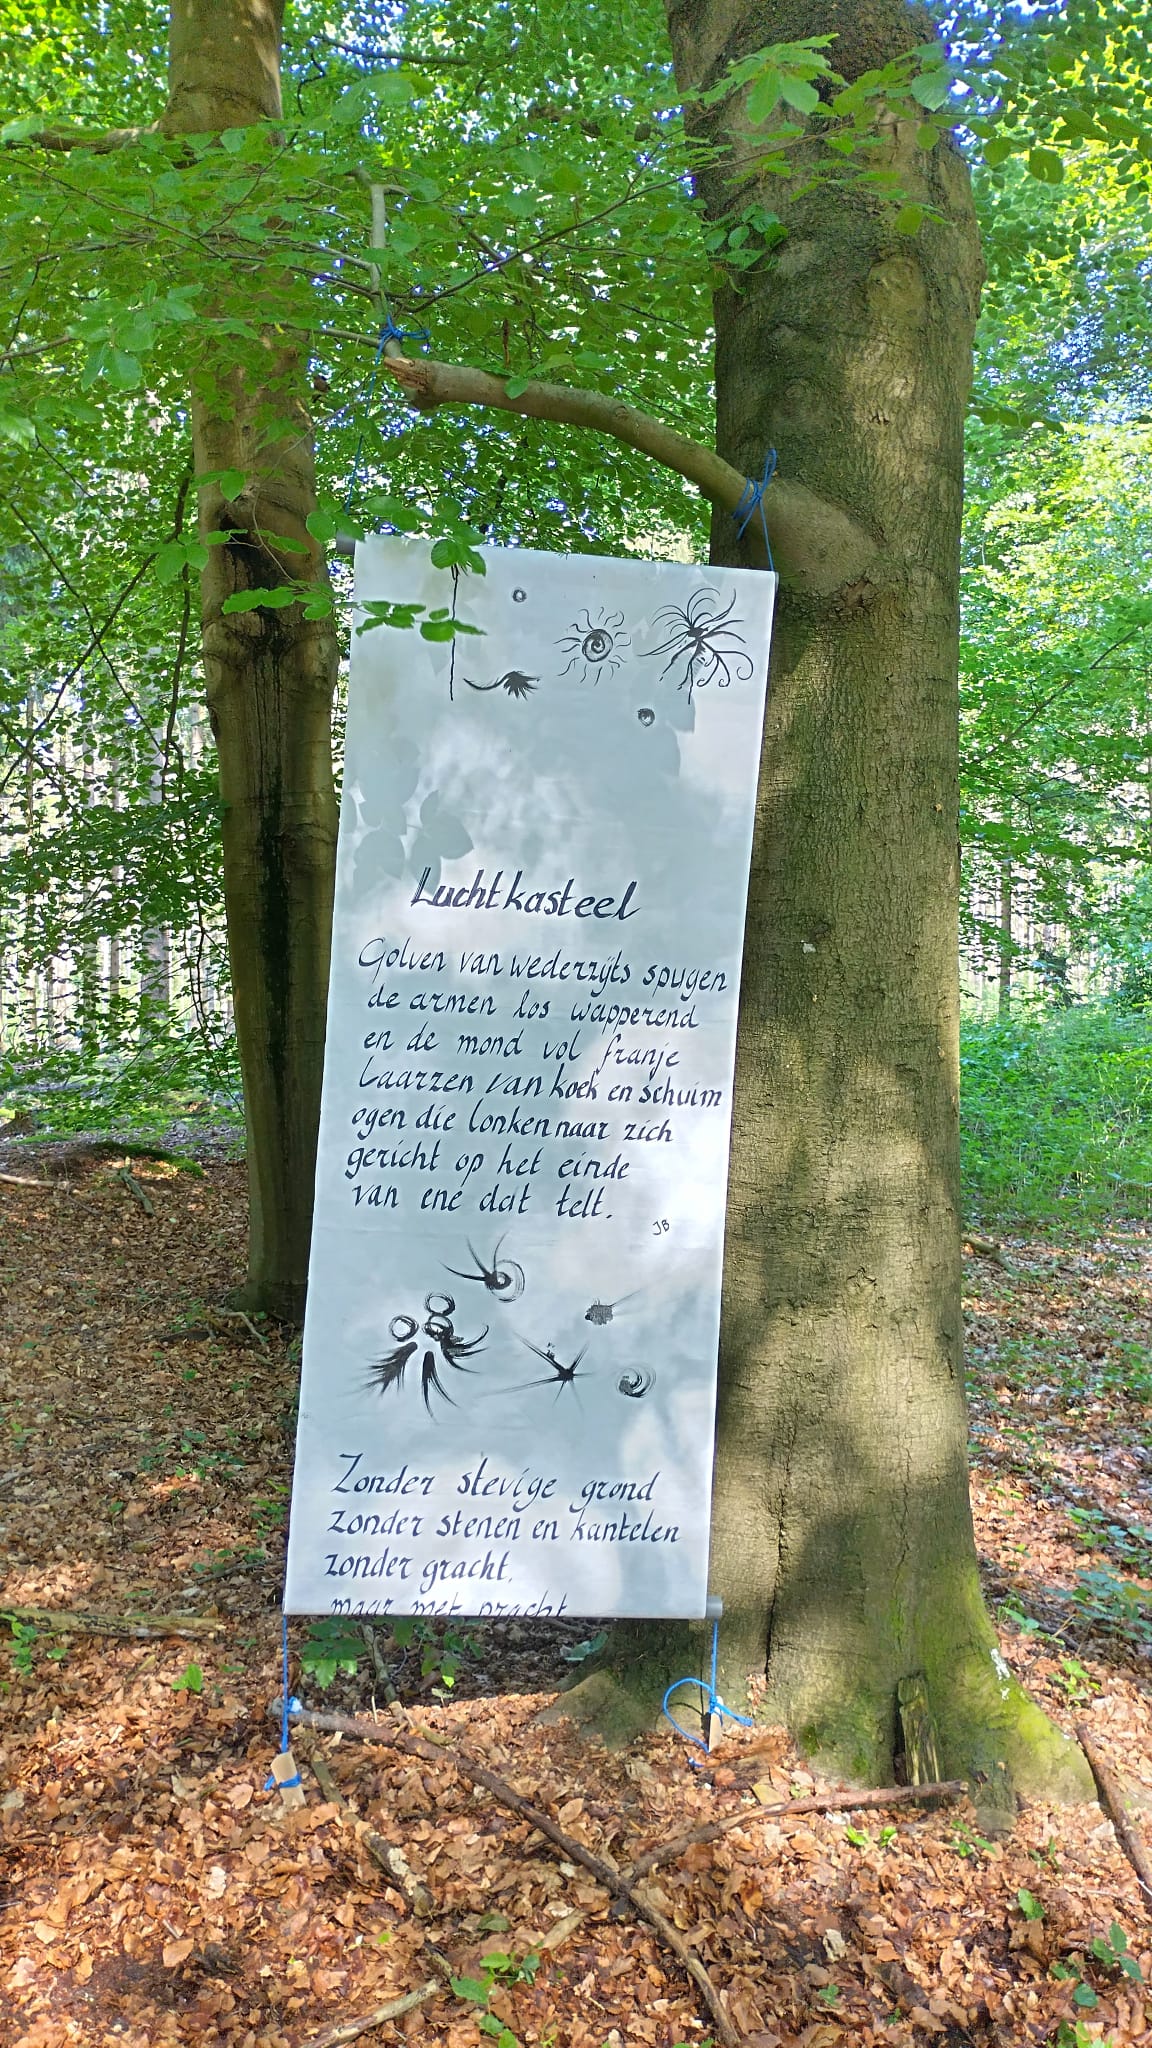 Luchtkasteel
Golven van wederzijts spugen
de armen los wapperend
en de mond vol franje
Laarzen van koek en schuim
ogen die lonken naar zich
gericht op het einde
van ene dat telt.
JB
Zonder stevige grond
zonder stenen en kantelen
zonder gracht,
maar met pracht